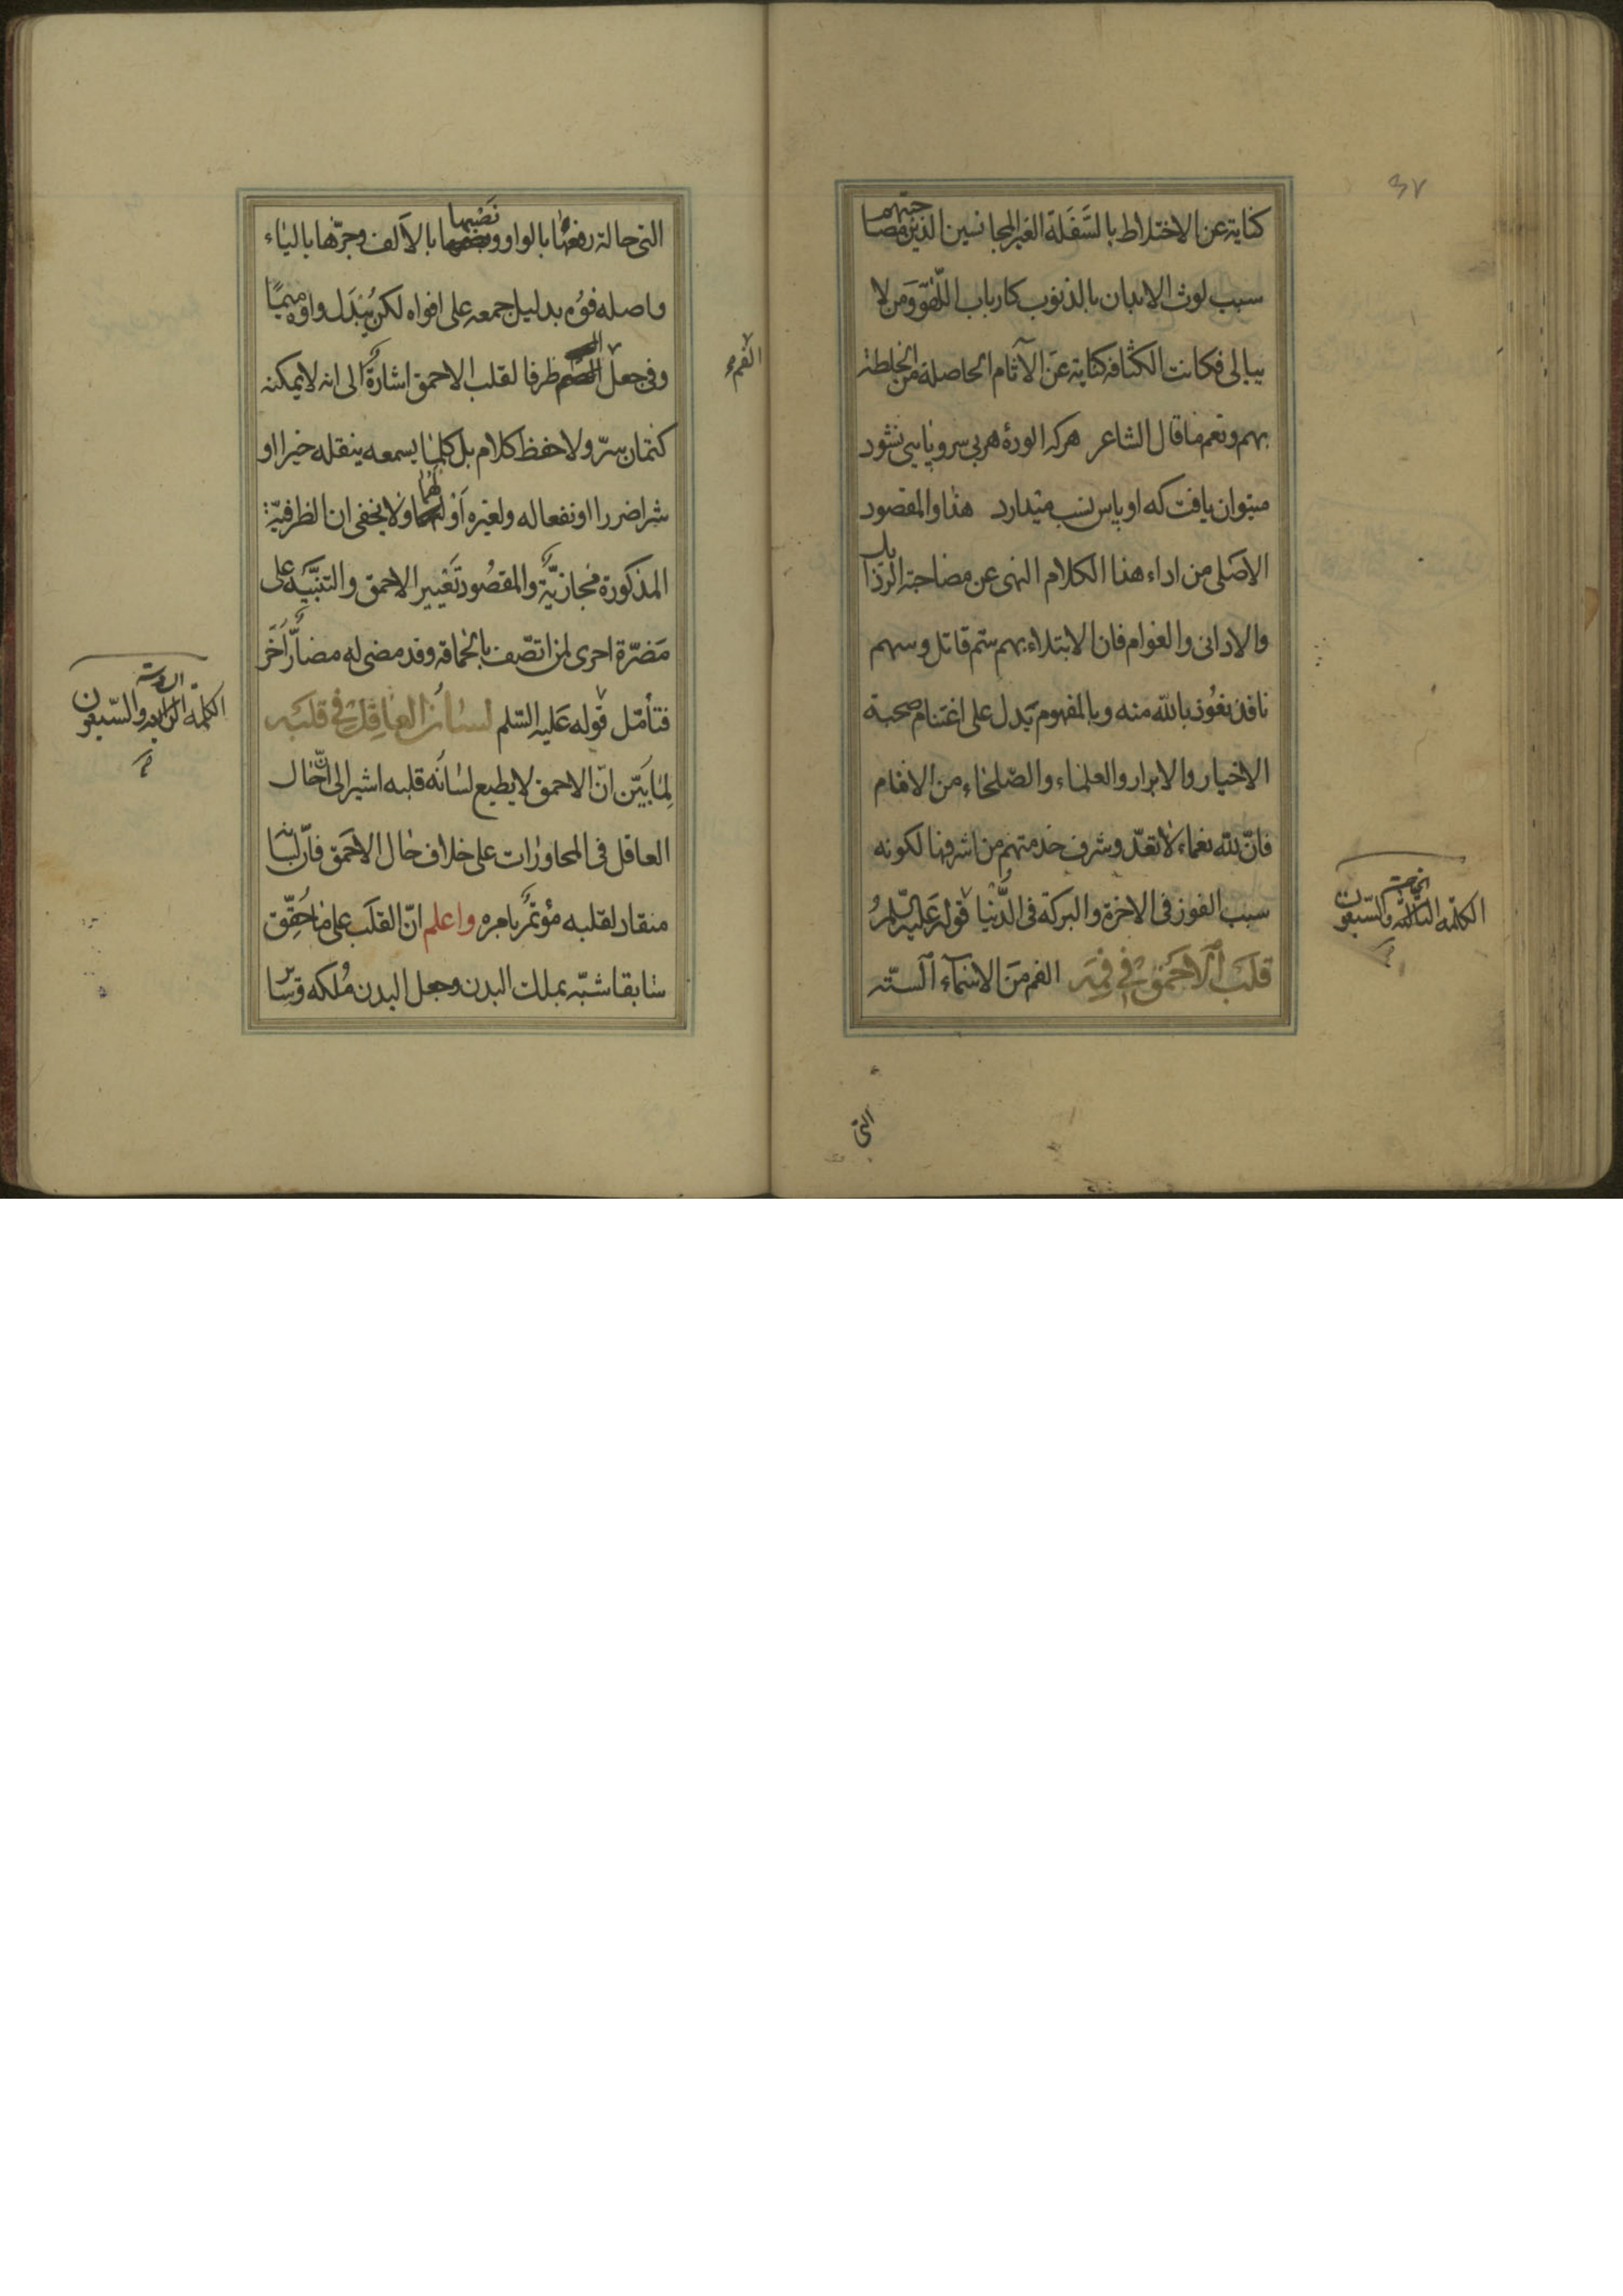 ٣٧
كناية عن الاختلاط بالسَّفَلة الغير المجانسين الذين مصاحبتهم
سبب لوث الابدان بالذنوب كارباب اللّهو ومن لا
يبالى فكانت الكثافة كناية عن الآثام الحاصلة من الخلطة
بهم ونعم ما قال الشاعر هركه الودهٔ هر بى سروپايى نشود
ميتوان يافت كه او پاس نسب ميدارد هذا والمقصود
الاصلى من اداء هذا الكلام النهى عن مصاحبة الرذايل
والادانى والعوام فان الابتلاء بهم سمّ قاتل وسهم
نافذ نعوذ بالله منه وبالمفهوم يدل على اغتنام صحبة
الاخيار والابرار والعلماء والصّلحاء من الانام
فانّ لله نعماء لا تعدّ وشرف خدمتهم من اشرفها لكونه
سبب الفوز فى الاخرة والبركة فى الدُّنيا قوله عليه السّلم
قلب الاحمق فى فمه الفم من الاسماء الستّه
الكلمة الثالثة والسّبعون
التى
التى حالة رفعها بالواو ونصبها بالالف وجرّها بالياء
واصله فوه بدليل جمعه على افواه لكن يُبدَل واوه ميمًا
وفى جعل الفم ظرفا لقلب الاحمق اشارة الى انه لا يمكنه
الفم
كتمان سرّ ولا حفظ كلام بل كلما يسمعه ينقله خيرا او
شرا ضررا او نفعا له ولغيره أو لهما ولا يخفى ان الظرفيّة
المذكورة مجازيّة والمقصود تعيير الاحمق والتنبيه على
مضرّة اخرى لمن اتصف بالحماقة وقد مضى له مضارّ أُخَر
فتأمّل قوله عليه السّلم لسان العاقل فى قلبه
الكلمة الرابعة والسّبعون
لما بَيّن انّ الاحمق لا يطيع لسانه قلبه اشير الى انّ حال
العاقل فى المحاورات على خلاف حال الاحمق فانّ لسانه
منقاد لقلبه مؤتمر بامره واعلم انّ القلب على ما حُقّق
سابقا شبّه بملك البدن وجعل البدن مُلكه